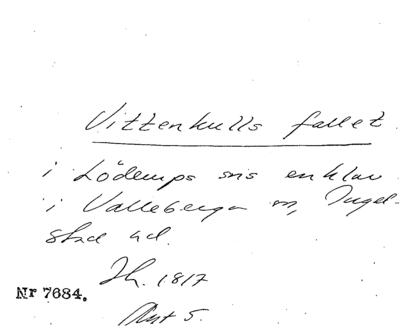 Vittenkulls fallet
i Löderups sns enklav
i Valleberga sn, Ingel-
stad hd.
Jh. 1817
Nr 7684.
Avst 5.